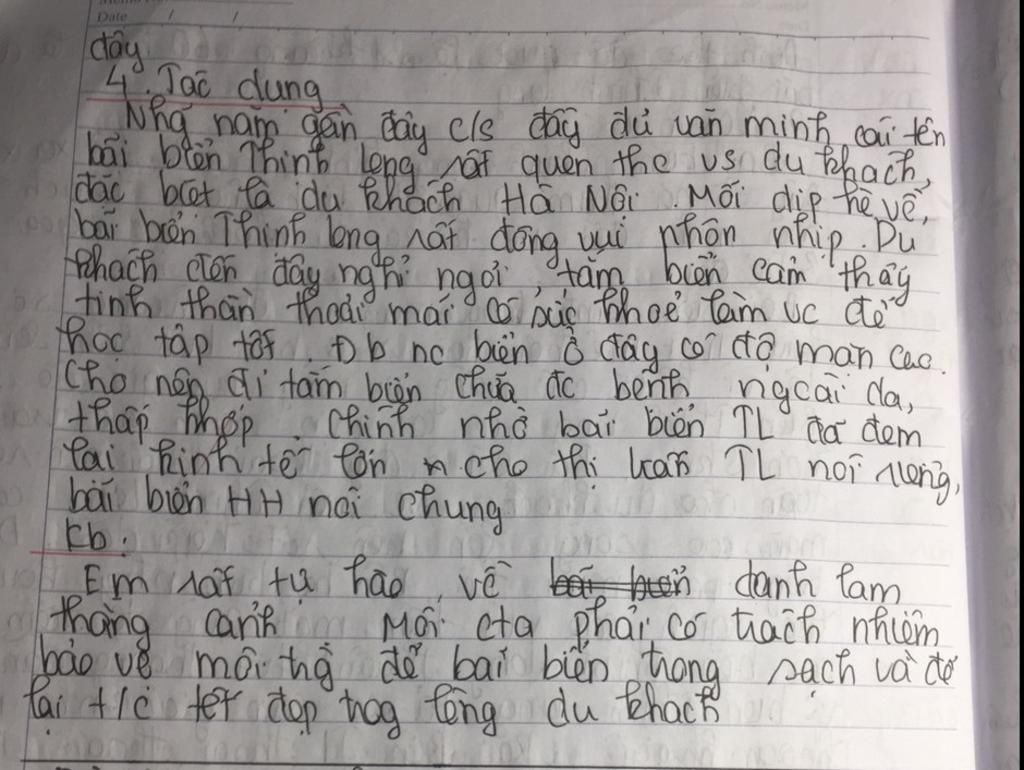 Date / /
đây
4. Tác dụng
Nhg năm gần đây c/s đầy đủ văn minh cái tên
bãi biển Thịnh Long rất quen thc vs du khách,
đặc biệt là du khách Hà Nội. Mỗi dịp hè về,
bãi biển Thịnh long rất đông vui nhộn nhịp. Du
khách đến đây nghỉ ngơi, tắm biển cảm thấy
tinh thần thoải mái có sức khoẻ làm vc để
học tập tốt. Đb nc biển ở đây có độ mặn cao.
Cho nên đi tắm biển chữa đc bệnh ngoài da,
thấp khớp. Chính nhờ bãi biển TL đã đem
lại kinh tế lớn cho thị trấn TL nói riêng,
bãi biển HH nói chung
Kb.
Em rất tự hào về bãi biển danh lam
thắng cảnh Mỗi cta phải có trách nhiệm
bảo vệ môi trg để bãi biển trong sạch và để
lại t/c tốt đẹp trog lòng du khách